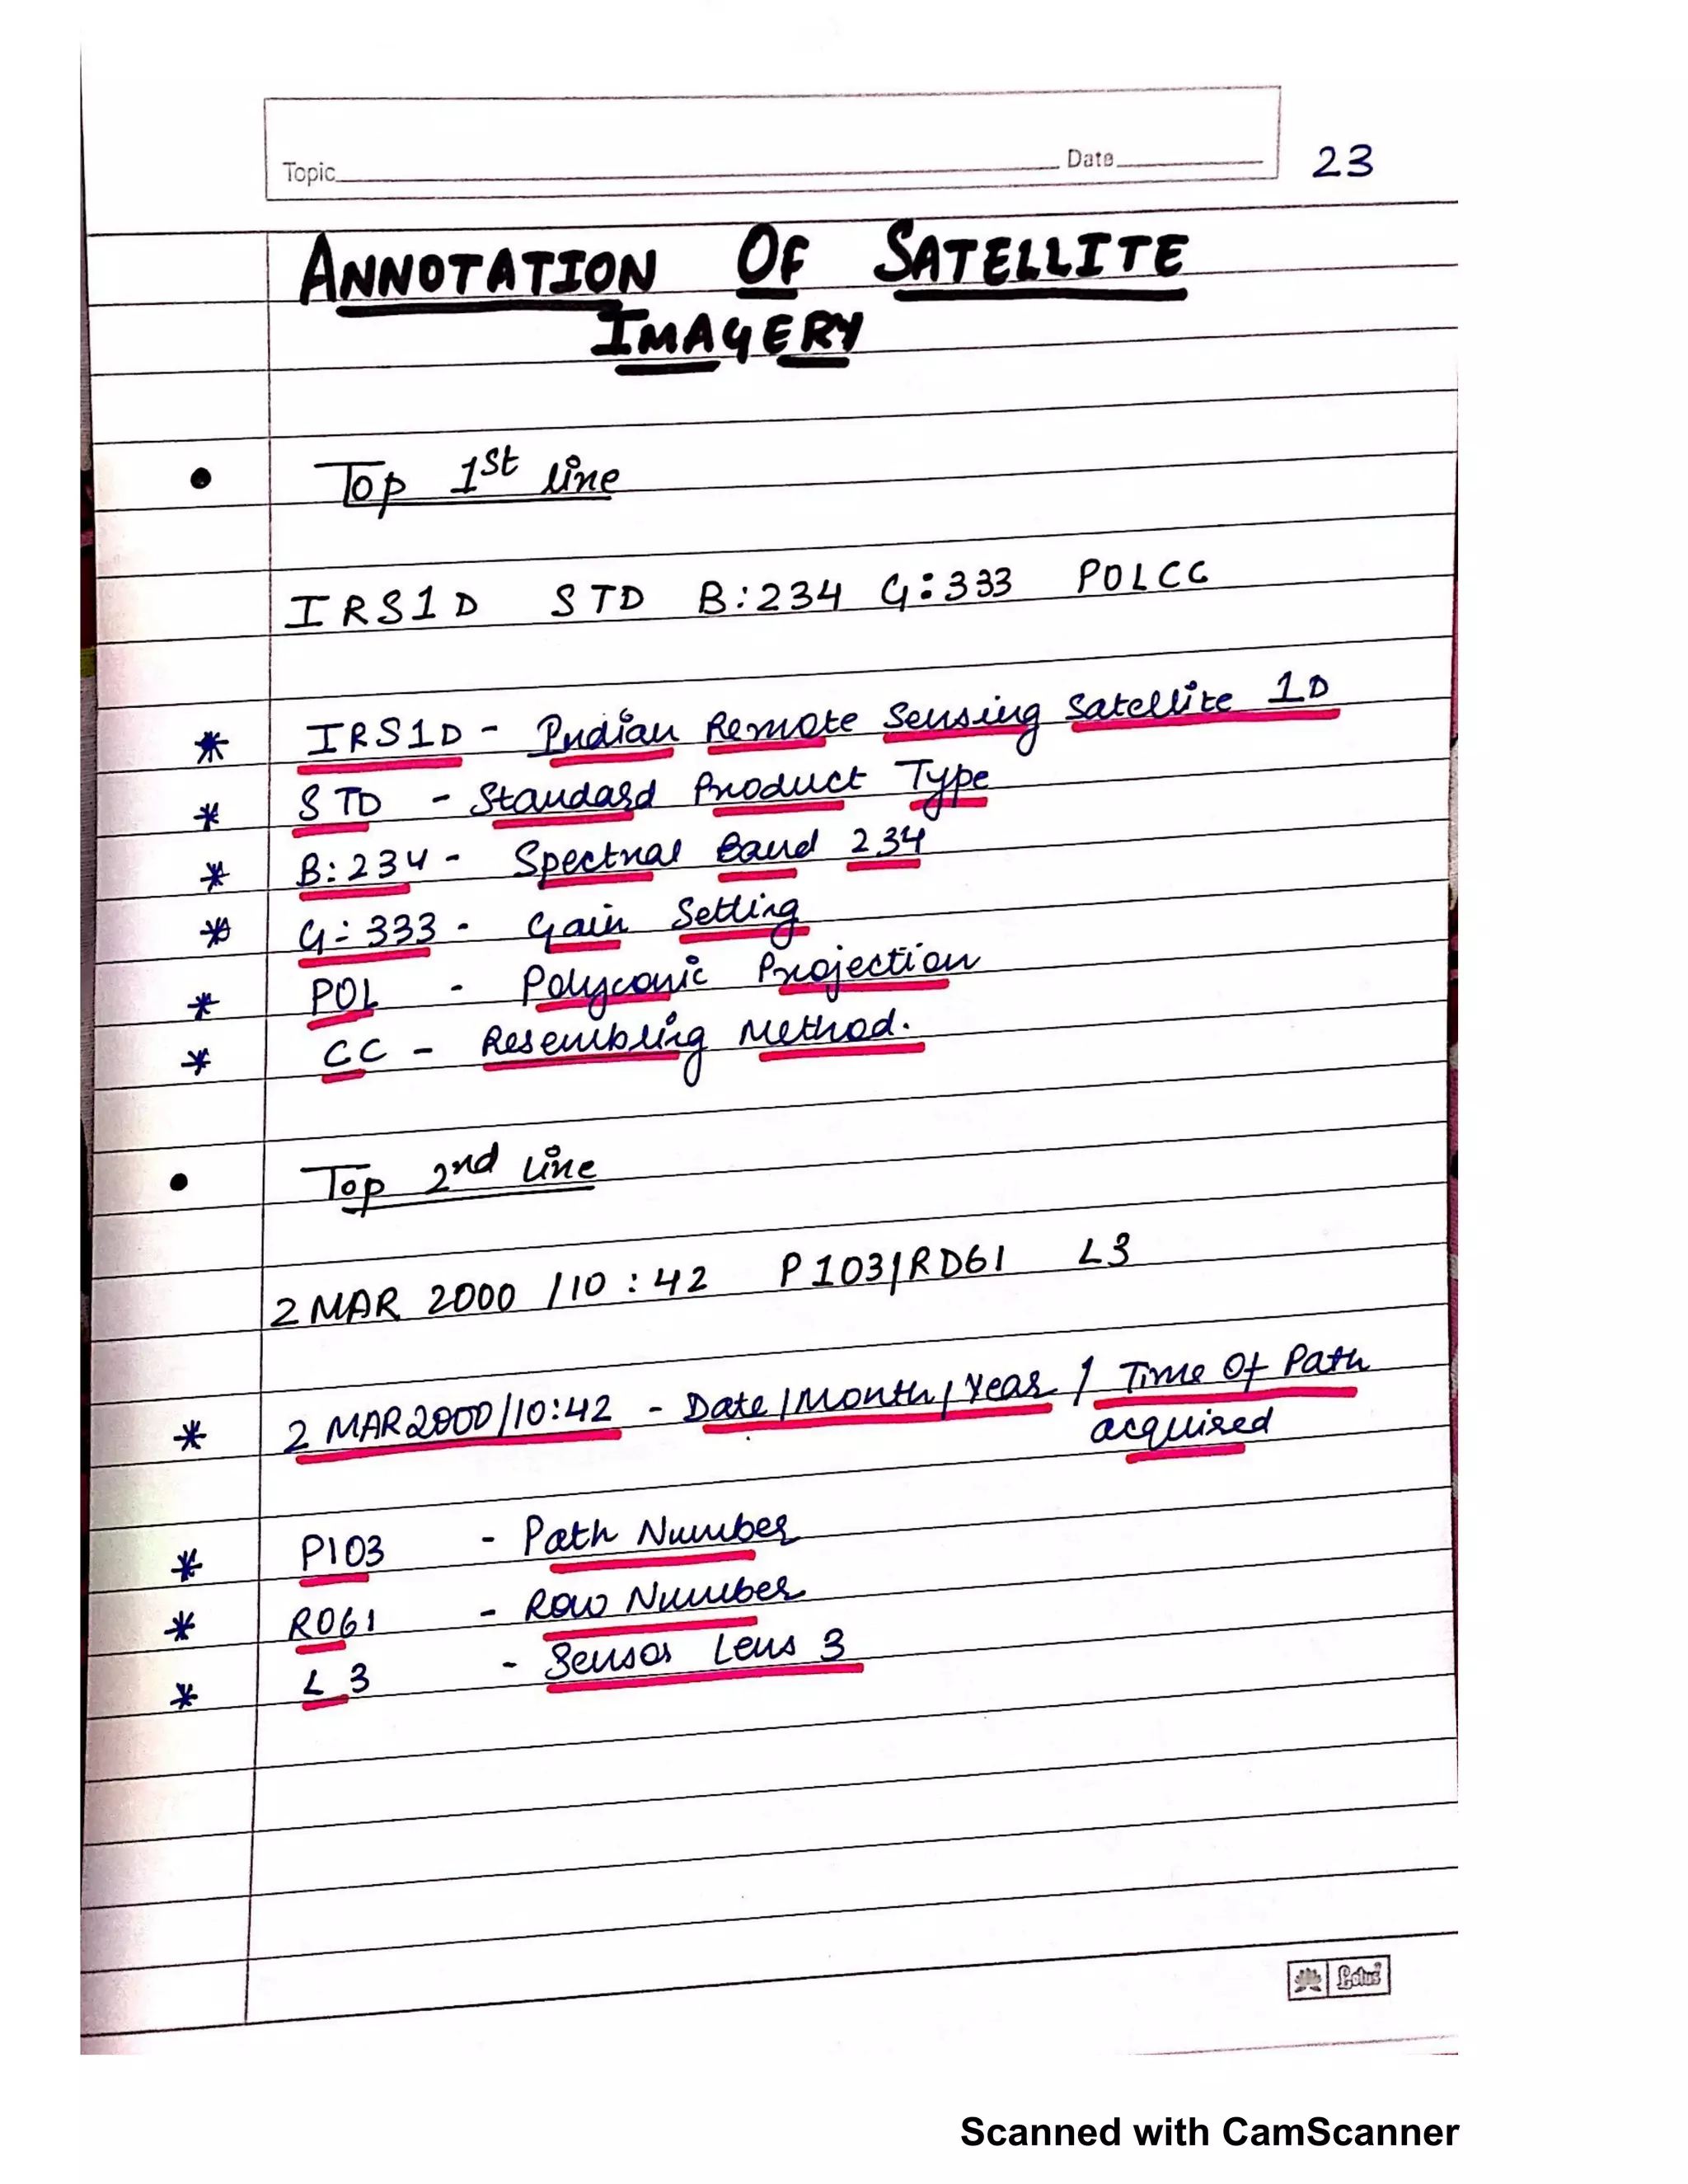 Topic Date 23
ANNOTATION OF SATELLITE
IMAGERY
• Top 1st line
IRS1D STD B:234 G:333 POLCC
* IRS1D - Indian Remote Sensing Satellite 1D
* STD - Standard Product Type
* B:234 - Spectral Band 234
* G:333 - Gain Setting
* POL - Polyconic Projection
* CC - Resembling Method.
• Top 2nd line
2 MAR 2000 /10:42 P103/RD61 L3
* 2 MAR2000/10:42 - Date/Month/Year / Time Of Path
acquired
* P103 - Path Number
* R061 - Row Number
* L3 - Sensor Lens 3
Lotus
Scanned with CamScanner